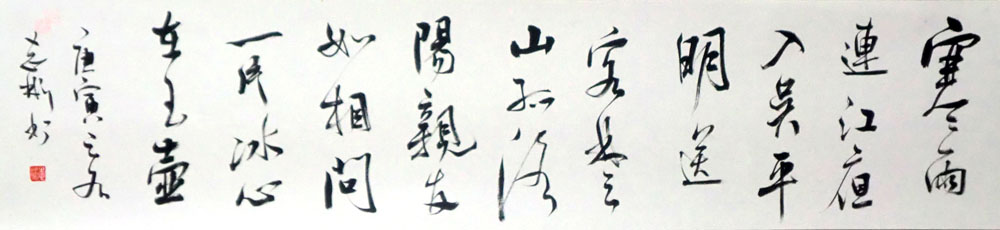 寒雨
連江夜
入吳平
明送
客楚
山孤洛
陽親友
如相問
一片冰心
在玉壺
庚寅之
志彬书